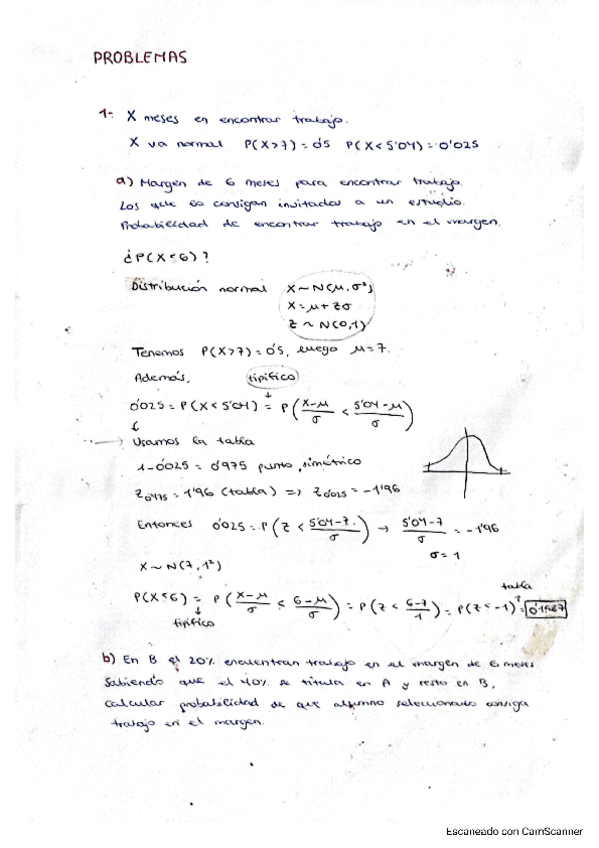 PROBLEMAS
1- X meses en encontrar trabajo.
X va normal P(X>7)=0'5 P(X<5'04)=0'025
a) Margen de 6 meses para encontrar trabajo.
Los que lo consigan invitados a un estudio.
Probabilidad de encontrar trabajo en el margen.
¿P(X<6)?
Distribución normal X~N(μ,σ²)
X=μ+Zσ
Z~N(0,1)
Tenemos P(X>7)=0'5, luego μ=7.
Además, tipifico
0'025 = P(X<5'04) = P((X-μ)/σ < (5'04-μ)/σ)
Usamos la tabla
1-0'025 = 0'975 punto simétrico
Z0'975 = 1'96 (tabla) => Z0'025 = -1'96
Entonces 0'025 = P(Z < (5'04-7)/σ) → (5'04-7)/σ = -1'96
σ=1
X~N(7,1²)
tabla
P(X≤6) = P((X-μ)/σ ≤ (6-μ)/σ) = P(Z < (6-7)/1) = P(Z<-1) = 0'1587
tipifico
b) En B el 20% encuentran trabajo en el margen de 6 meses
Sabiendo que el 40% se titula en A y resto en B,
calcular probabilidad de que alumno seleccionado consiga
trabajo en el margen.
Escaneado con CamScanner